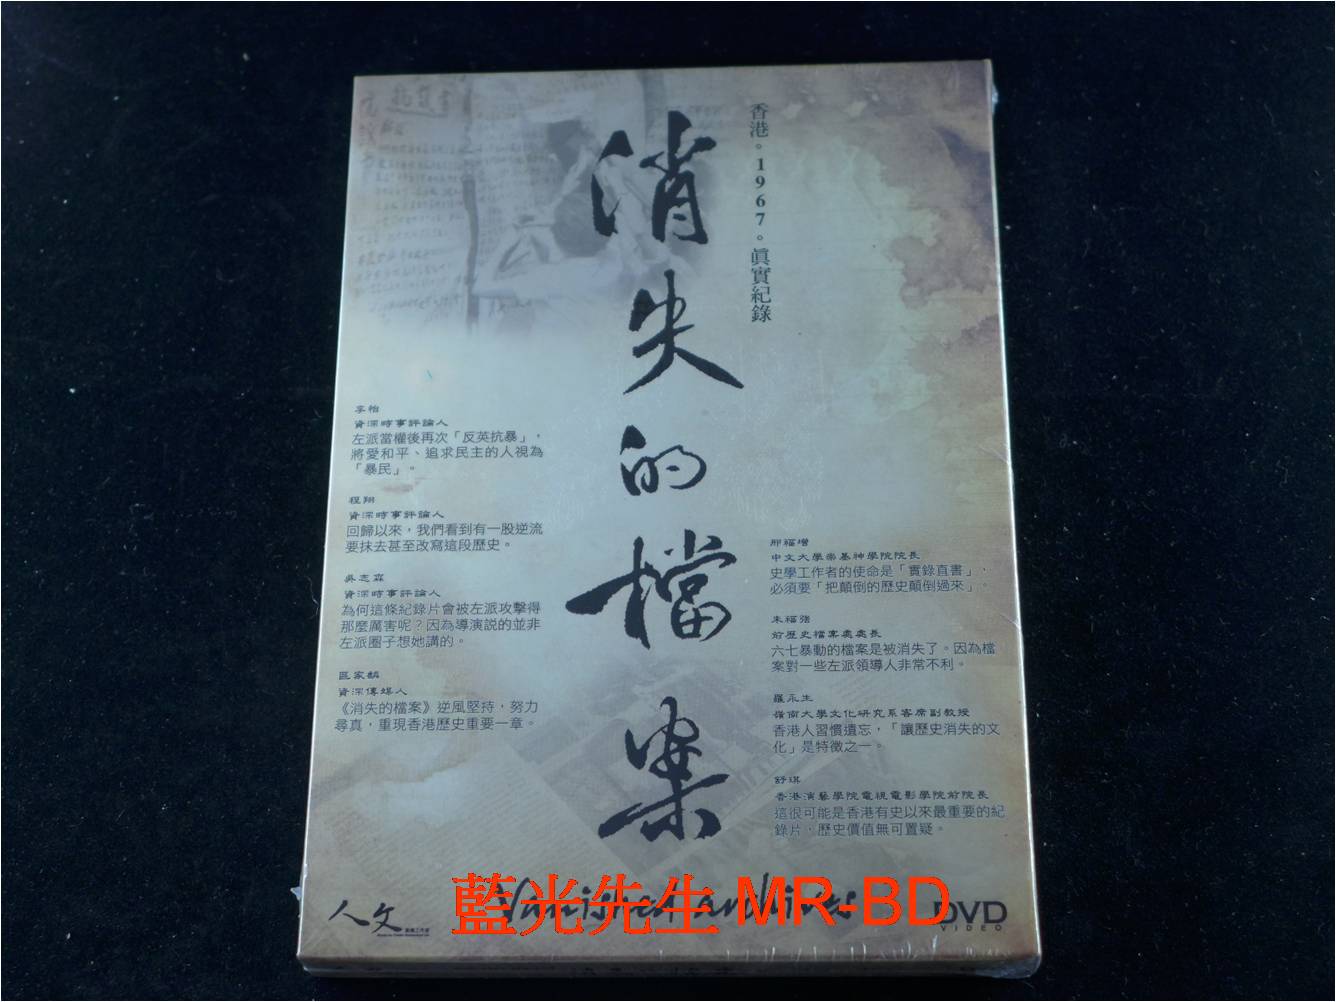 香港。1967。眞實紀錄
消失的檔案
李怡
資深時事評論人
左派當權後再次「反英抗暴」，
將愛和平、追求民主的人視為
「暴民」。
程翔
資深時事評論人
回歸以來，我們看到有一股逆流
要抹去甚至改寫這段歷史。
吳志森
資深時事評論人
為何這條紀錄片會被左派攻擊得
那麼厲害呢？因為導演説的並非
左派圈子想她講的。
區家麟
資深傳媒人
《消失的檔案》逆風堅持，努力
尋真，重現香港歷史重要一章。
邢福增
中文大學崇基神學院院長
史學工作者的使命是「實錄直書」，
必須要「把顛倒的歷史顛倒過來」。
朱福強
前歷史檔案處處長
六七暴動的檔案是被消失了。因為檔
案對一些左派領導人非常不利。
羅永生
嶺南大學文化研究系客席副教授
香港人習慣遺忘，「讓歷史消失的文
化」是特徵之一。
舒琪
香港演藝學院電視電影學院前院長
這很可能是香港有史以來最重要的紀
錄片，歷史價值無可置疑。
Vanished archives
藍光先生 MR-BD
人文
DVD
VIDEO